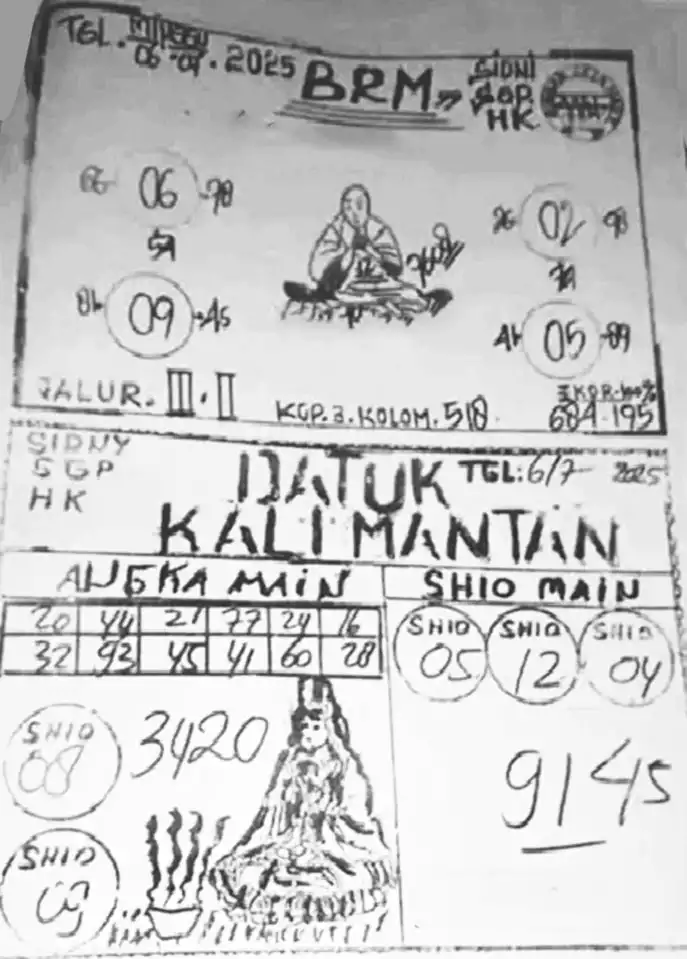 TGL. MINGGU
06-07. 2025
BRM
SIDNI
SGP.
HK
06 -78
59
09 45
26 02 98
79
05 -89
JALUR. III. II
KOP. 3. KOLOM. 518
EKOR 100%
684-195
SIDNY
SGP
HK
DATUK
KALIMANTAN
TGL: 6/7- 2025
ANGKA MAIN
SHIO MAIN
20 44 21 77 24 16
32 93 45 41 60 28
SHIO
05
SHIO
12
SHIO
04
SHIO
08
3420
9145
SHIO
09